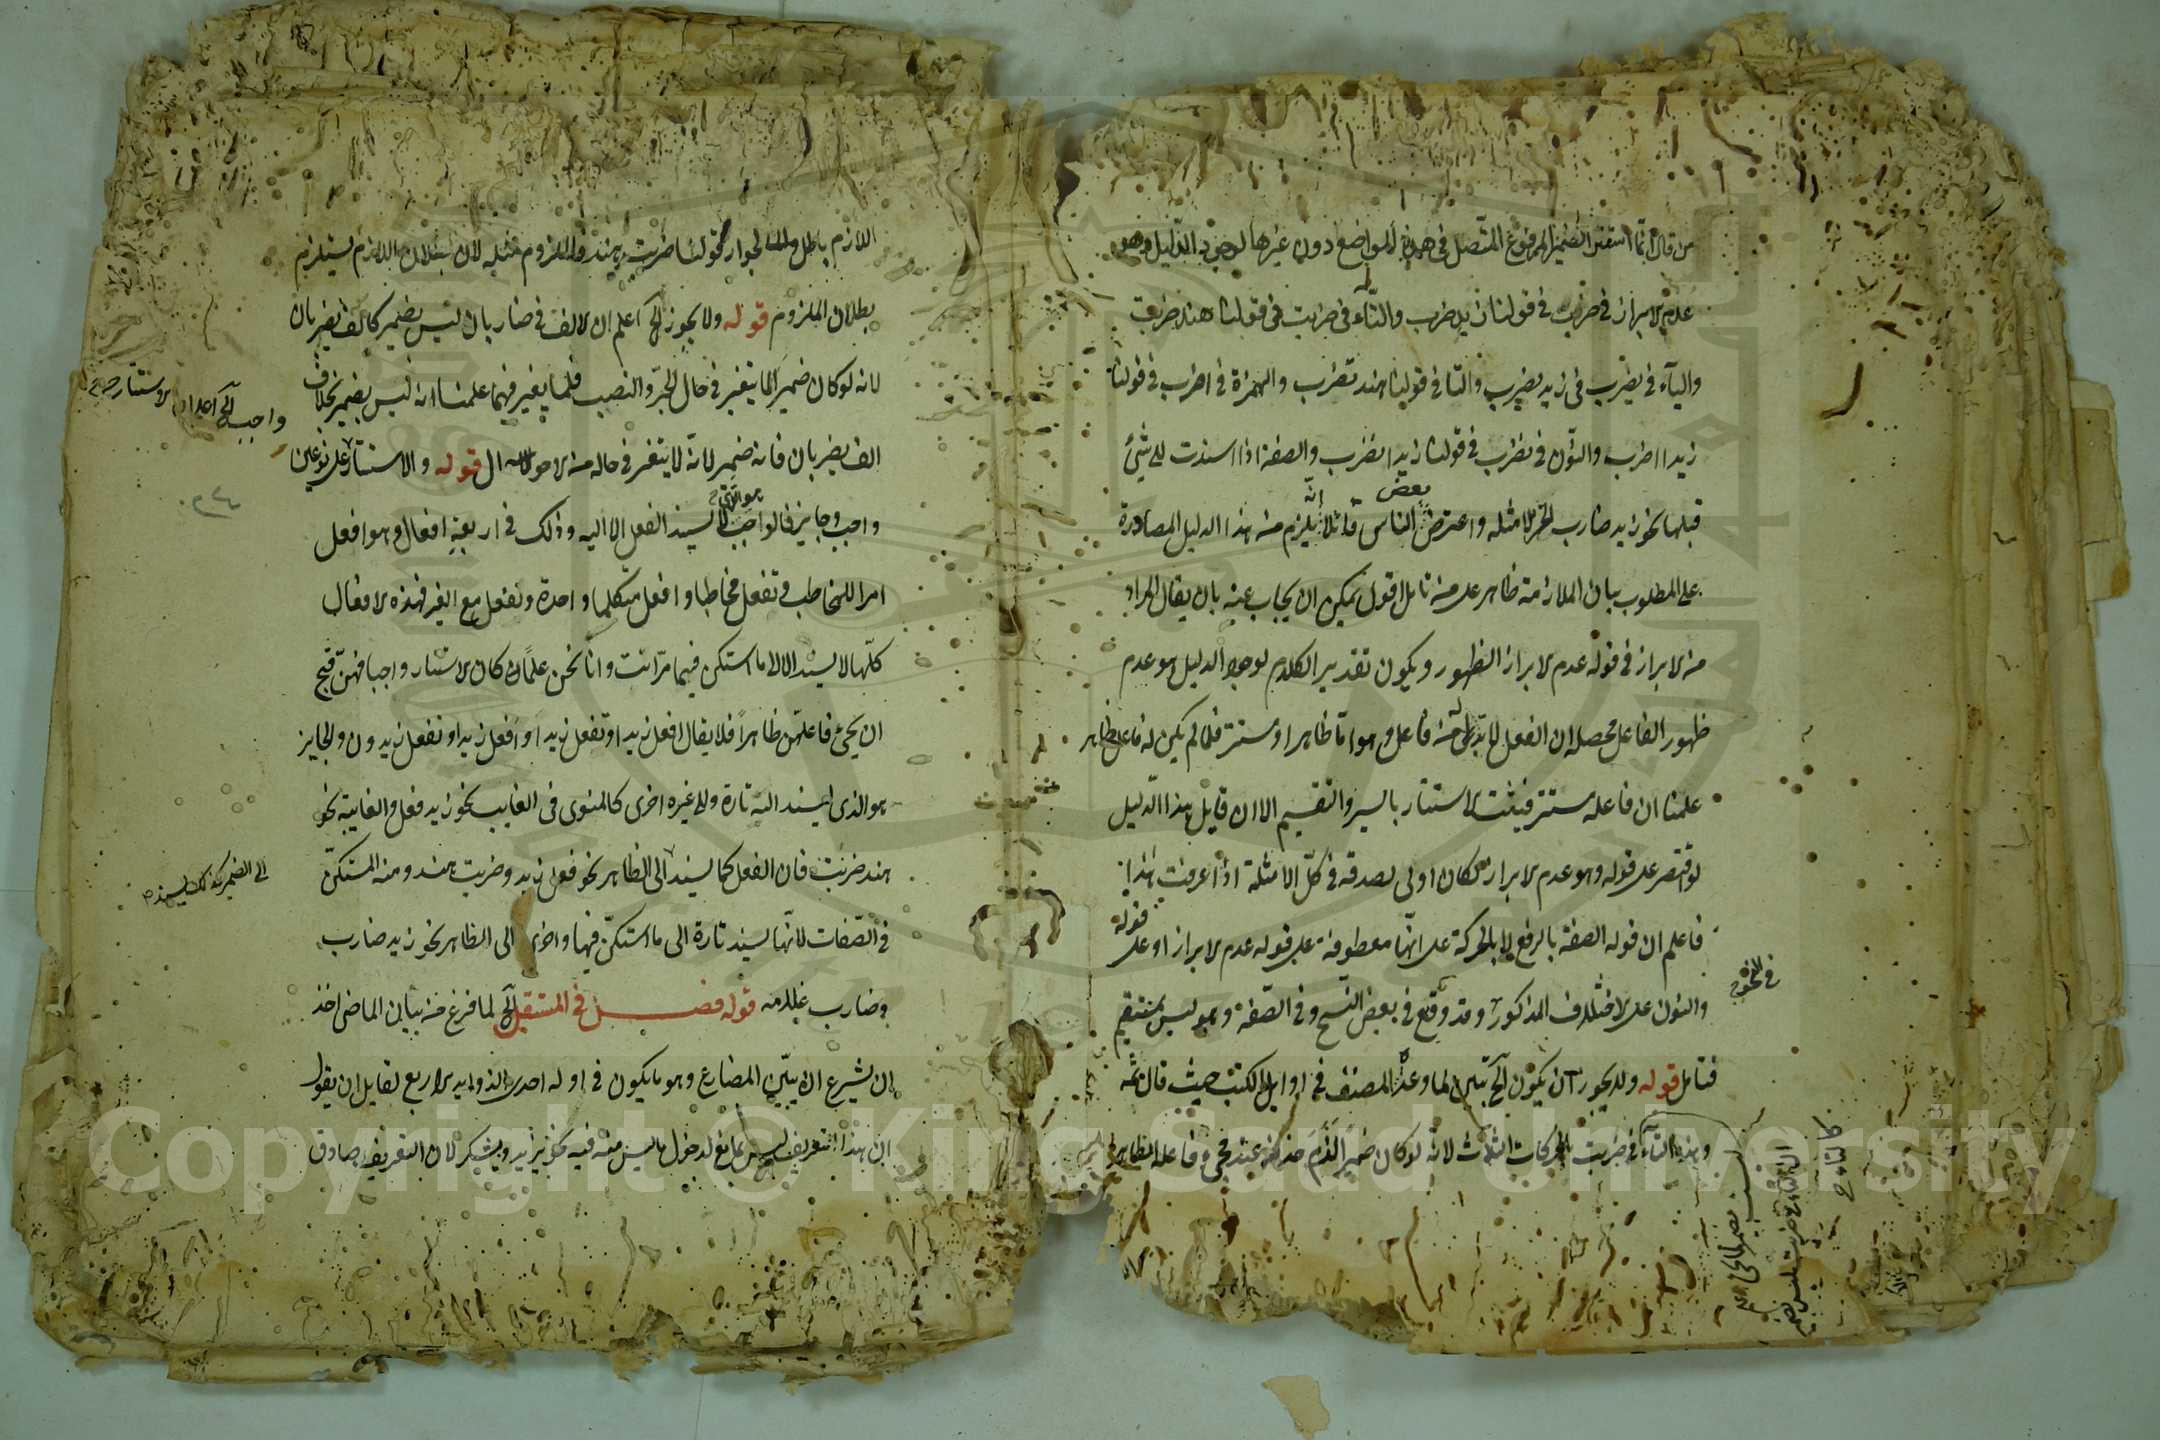 من قال انما استتر الضمير المرفوع المتصل في هذه المواضع دون غيرها لوجود الدليل وهو
عدم الابراز في ضرب في قولنا زيد ضرب والتاء في ضربت في قولنا هند ضربت
والياء في يضرب في زيد يضرب والتا في قولنا هند تضرب والهمزة في اضرب في قولنا
زيدا اضرب والنون في نضرب في قولنا زيدا نضرب والصفة اذا اسندت الى شئ
قبلها نحو زيد ضارب واعترض بعض الناس قائلا انه يلزم منه هذا الدليل المصادرة
على المطلوب بيان الملازمة ظاهر على من تامل اقول يمكن ان يجاب عنه بان يقال المراد
من الابراز في قوله عدم الابراز الظهور ويكون تقدير الكلام لوجود الدليل هو عدم
ظهور الفاعل محصله ان الفعل لا بد له من فاعل وهو اما ظاهر او مستتر فلما لم يكن له فاعل ظاهر
علمنا ان فاعله مستتر فيثبت الاستتار بالسبر والتقسيم الا ان قايل هذا الدليل
لو اقتصر على قوله وهو عدم الابراز لكان اولى لصدقه في كل الامثلة اذا عرفت هذا
فاعلم ان قوله الصفة بالرفع لا بالحركة على انها معطوفة على قوله عدم الابراز او على قوله
والنون على الاختلاف المذكور وقد وقع في بعض النسخ وفي الصفة وهو ليس بمستقيم
فتامل قوله ولا يجوز ان يكون الخ تبيين لما وعد المصنف في اوايل الكتب حيث قال ثمه
وهذه التاء في ضربت بالحركات الثلاث لانه لو كان ضميرا لزم حذفه عند مجئ فاعله الظاهر
في النحو
ليست بضمير
كالتاء
اللازم باطل لجواز قولنا ضربت هند فالملزوم مثله لان بطلان اللازم يستلزم
بطلان الملزوم قوله ولا يجوز الخ اعلم ان الالف في ضاربان ليس بضمير كالف يضربان
لانه لو كان ضميرا لما يتغير في حال الجر والنصب فلما يغير فيهما علمنا انه ليس بضمير بخلاف
الف يضربان فانه ضمير لانه لا يتغير في حالة من الاحوال قوله والاستتار على نوعين
واجب وجايز فالواجب هو الذي لا يسند الفعل الا اليه وذلك في اربعة افعال وهو افعل
امرا للمخاطب وتفعل مخاطبا وافعل متكلما واحدة ونفعل مع الغير فهذه الافعال
كلها لا يسند الا الى ما استكن فيها من انت وانا نحن علما ان كان الاستتار واجبا فيهن قبح
ان يجئ فاعلهن ظاهرا فلا يقال افعل زيد او تفعل زيد او افعل زيد او نفعل زيدون والجايز
هو الذي يسند اليه تارة والى غيره اخرى كالمنوى في الغايب نحو زيد فعل والغايبة نحو
هند ضربت فان الفعل كما يسند الى الظاهر نحو فعل زيد وضربت هند ومنه المستكن
في الصفات لانها يسند تارة الى ما استكن فيها واخرى الى الظاهر نحو زيد ضارب
وضارب غلامه قوله فصل في المستقبل الخ لما فرغ من بيان الماضى اخذ
ان يشرع ان يبين المضارع وهو ما يكون في اوله احدى الزوايد الاربع لقايل ان يقول
ان هذا التعريف ليس بمانع لدخول ما ليس منه فيه نحو يزيد ويشكر لان التعريف صادق
واجب الخ اعلم ان الاستتار
الى الضمير كذلك يسند